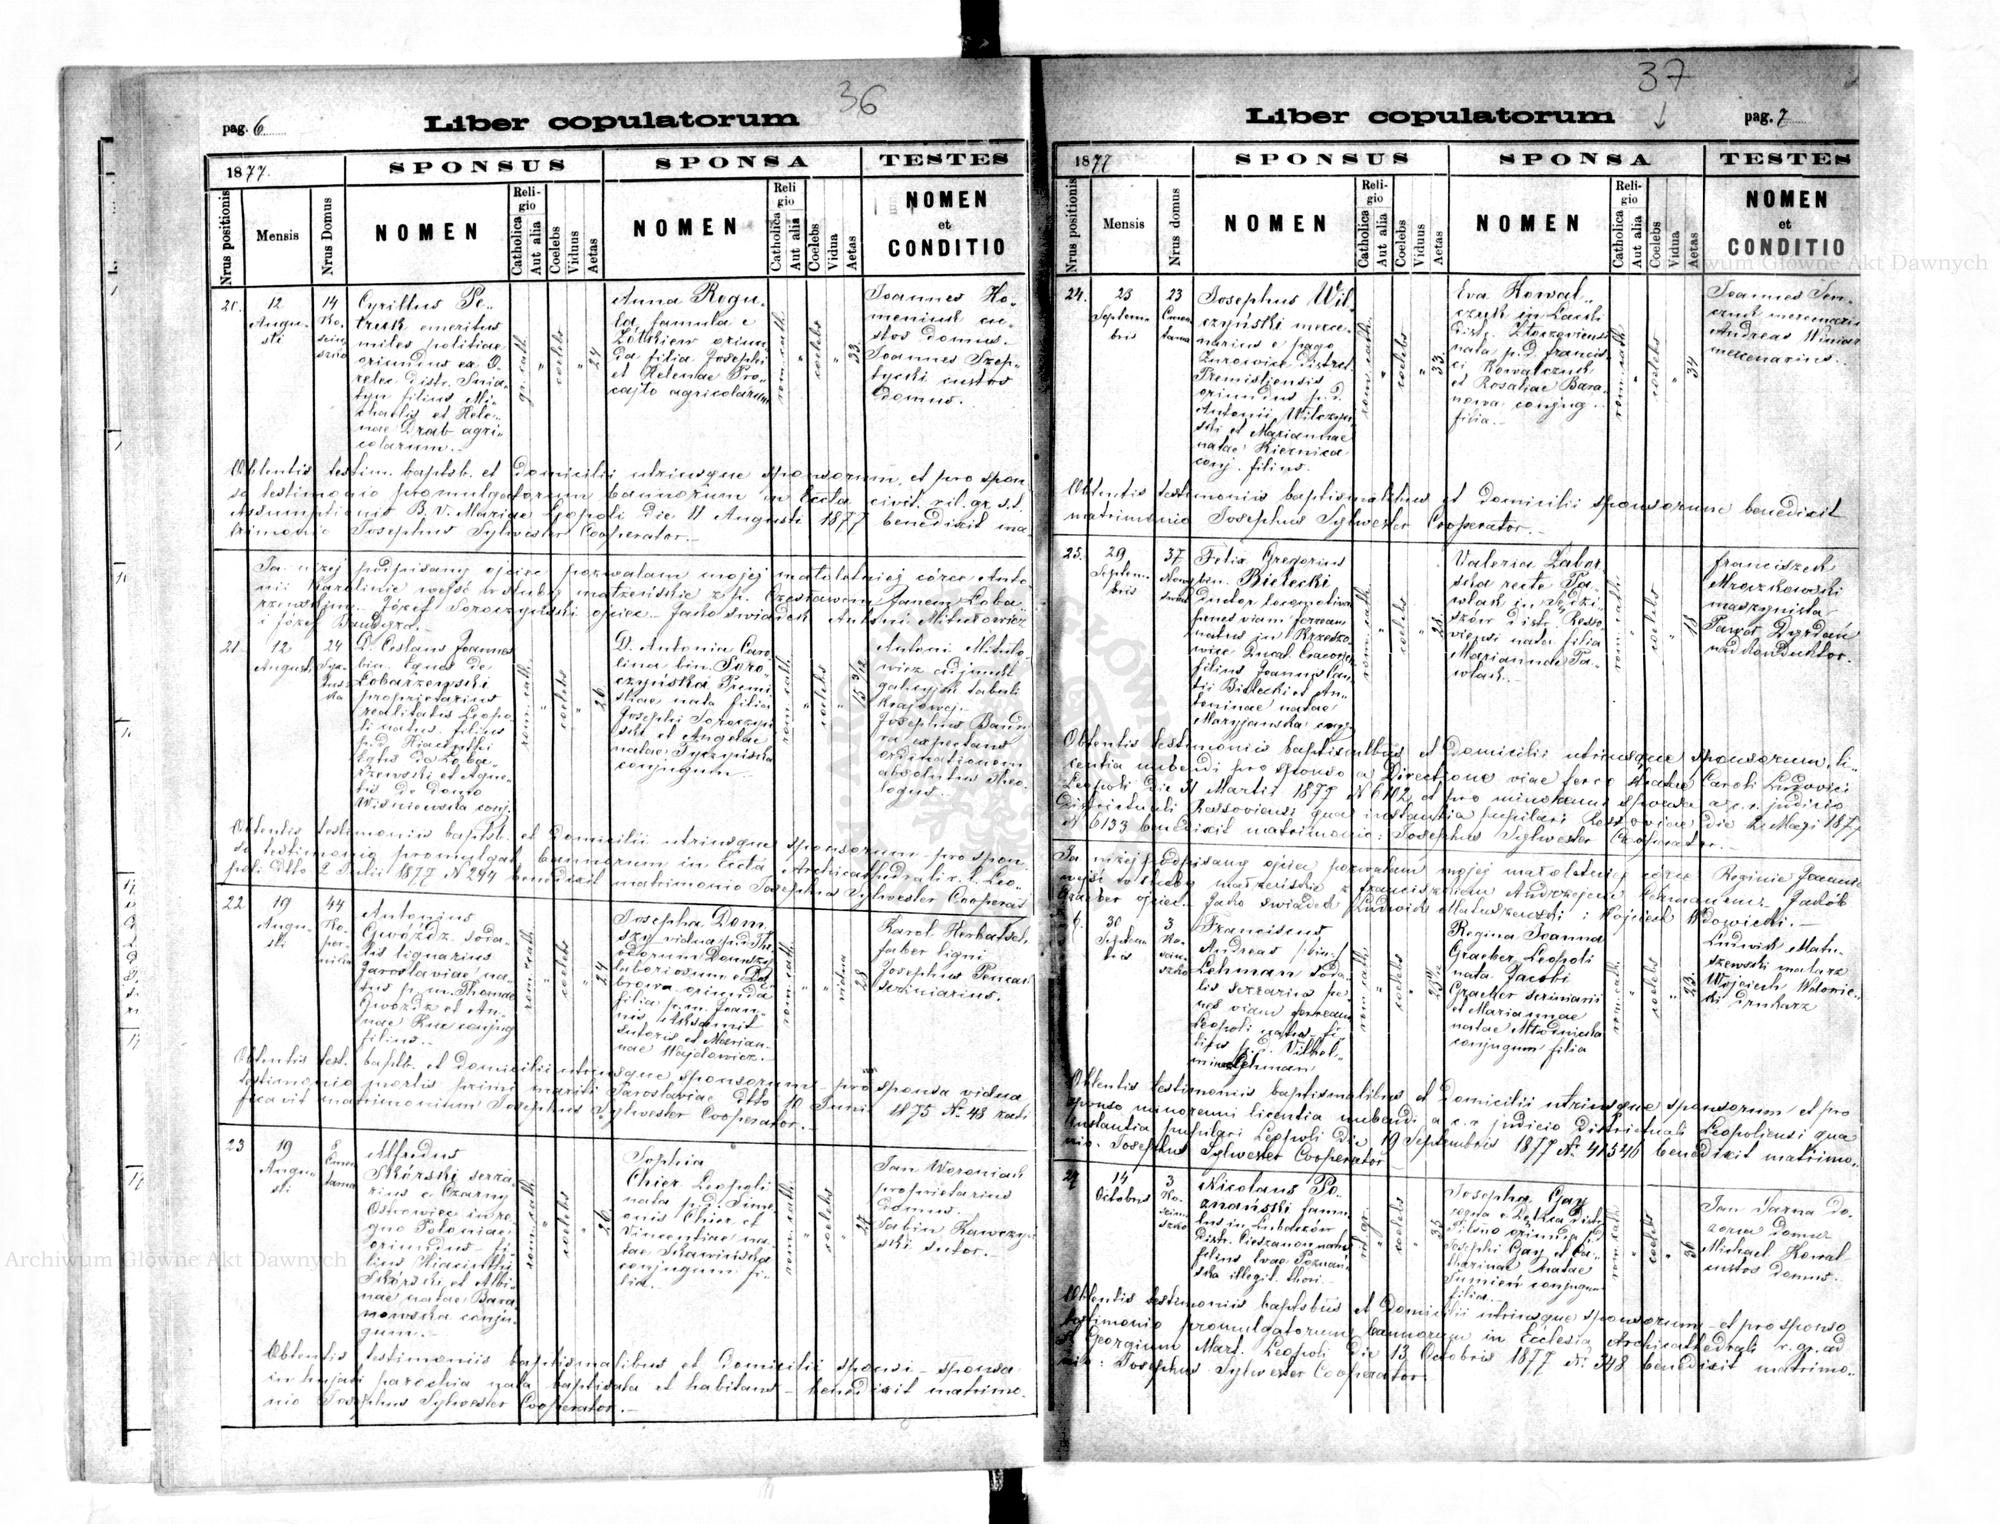 36
pag. 6
Liber copulatorum
1877.
SPONSUS
SPONSA
TESTES
Nrus positionis
Mensis
Nrus Domus
NOMEN
Religio
Catholica
Aut alia
Coelebs
Viduus
Aetas
NOMEN
Religio
Catholica
Aut alia
Coelebs
Vidua
Aetas
NOMEN
et
CONDITIO
12
Augu-
sti
14
Cyrillus Pe-
truk emeritus
miles politiae
oriundus ex
distr. Snia-
tyn filius Mi-
chaelis et Hele-
nae Drab agri-
colarum.
gr. cath.
coelebs
24
Anna Rogu-
la famula e
Żółkiew oriun-
da filia Josephi
et Helenae Pro-
cajło agricolarum
rom. cath.
coelebs
33.
Joannes Ho-
meniuk cu-
stos domus.
Joannes Szep-
tycki custos
domus.
Obtentis testim. baptsb. et Domicilii utriusque sponsorum, et pro spon-
so testimonio promulgatorum bannorum in Eccla civit. rit. gr. s.t.
Assumptionis B. V. Mariae Leopoli die 11 Augusti 1877 benedixit ma-
trimonio Josephus Sylwester Cooperator.
Ja niżej podpisany ojciec pozwalam mojej małoletniej córce Anto-
nii Karolinie wejść w śluby małżeńskie z p. Czesławem Janem Łoba-
rzewskim. Józef Soroczyński ojciec. Jako świadek Antoni Mitulowicz
i Józef Bandura.
21.
12
Augusti
24
D. Ceslaus Joannes
bin. Eques de
Łobarzewski
proprietarius
realitatis Leopo-
li natus, filius
p.d. Hiacynthi
Equs de Łoba-
rzewski et Agne-
tis de domo
Wiśniewska conj.
rom. cath.
coelebs
26
D. Antonia Caro-
lina bin. Soro-
czyńska Premi-
sliae nata filia
Josephi Soroczyń-
ski et Angelae
natae Tyczyńska
conjugum.
rom. cath.
coelebs
Antoni Mitulo-
wicz adjunkt
galicyjsk. tabuli
krajowej.
Josephus Bandu-
ra expectans
ordinationem
absolutus theo-
logus.
Obtentis testimoniis baptsb. et domicilii utriusque sponsorum pro spon-
so testimonio promulgat. bannorum in Eccla Archicathedrali r. l. Leo-
poli dtto 2 Julii 1877 N 294 benedixit matrimonio Josephus Sylwester Cooperat.
22.
19
Augu-
sti
44
Ko-
per-
nika
Antonius
Gwóźdź soda-
lis lignarius
Jaroslaviae na-
tus p. m. Thomae
Gwóźdź et An-
nae Ruc conjug
filius.
rom. cath.
coelebs
24
Josepha Dom
szy vidua p.d. The-
odorum Domszy
laboriosum e Da-
browa oriunda
filia p.m. Joan-
nis Aksamit
sutoris et Marian-
nae Wajdowicz.
rom. cath.
vidua
28
Karol Herbatsch
faber ligni
Josephus Pencar
scriniarius.
Obtentis test. baptsb. et domicilii utriusque sponsorum pro sponsa vidua
testimonio mortis primi mariti Jaroslaviae dtto 10 Junii 1875 N. 48 rati-
ficavit matrimonium Josephus Sylwester Cooperator.
23
19
Augu-
sti
8
Alfredus
Skórski serra-
rius e Czarny
Ostrowiec in re-
gno Poloniae
oriundus fi-
lius Hiacinthi
Skórski et Albi-
nae natae Bara-
nowska conju-
gum.
rom. cath.
coelebs
26
Sophia
Chier Leopoli
nata p.d. Sime-
onis Chier et
Vincentiae na-
tae Skawińska
conjugum fi-
lia.
rom. cath.
coelebs
27
Jan Woroniak
proprietarius
domus.
Sabin Kawczyń-
ski sutor.
Obtentis testimoniis baptismalibus et domicilii sponsi - sponsa
in hujati parochia nata baptisata et habitans - benedixit matrimo-
nio Josephus Sylwester Cooperator.
37
Liber copulatorum
pag. 7
1877
SPONSUS
SPONSA
TESTES
Nrus positionis
Mensis
Nrus domus
NOMEN
Religio
Catholica
Aut alia
Coelebs
Viduus
Aetas
NOMEN
Religio
Catholica
Aut alia
Coelebs
Vidua
Aetas
NOMEN
et
CONDITIO
24.
23
Septem-
bris
23
Josephus Wil-
czyński merce-
narius e pago
Żurowice district.
Premisliensis
oriundus p.d.
Antonii Wilczyń-
ski et Mariannae
natae Kiernica
conj. filius.
rom. cath.
coelebs
33.
Eva Kowal-
czyk in Lacki
distr. Złoczoviensi
nata p.d. Francis-
ci Kowalczuk
et Rosaliae Bara-
nowa conjug.
filia.
rom. cath.
coelebs
34
Joannes
mercenarius
Andreas Winiar
mercenarius.
Obtentis testimoniis baptismalibus et domicilii sponsorum benedixit
matrimonio Josephus Sylwester Cooperator.
25.
29
Septem-
bris
37
Felix Gregorius
bin. Bielecki
ductor locomotivae
penes viam ferream
natus in Krzeszo-
wice Ducat. Cracovien.
filius Joannis Can-
tii Bielecki et An-
toninae natae
Maryjańska conj.
rom. cath.
coelebs
28.
Valeria Zabor-
ska recte Pa-
wlak in Sędzi-
szów distr. Resso-
viensi nata filia
Mariannae Pa-
wlak.
rom. cath.
coelebs
18
Franciszek
Mroczkowski
maszynista
Paweł Dyrdań
nadkonduktor.
Obtentis testimoniis baptismalibus et domicilii utriusque sponsorum, li-
centia nubendi pro sponso a Directione viae ferreae Caroli Ludovici
Leopoli die 31 Martii 1877 N 6102, et pro minorenni sponsa a c. r. judicio
Districtuali Rassoviensi qua instantia pupilari Ressoviae die 2 Maji 1877
N 6133 benedixit matrimonio: Josephus Sylwester Cooperator.
Ja niżej podpisany ojciec pozwalam mojej małoletniej córce Reginie Joannie
wejść w śluby małżeńskie z Franciszkiem Andrzejem Lehmanem. Jakób
Graeber ojciec. Jako świadek Ludwik Matuszewski i Wojciech Wdowicki.
30
Septem-
bris
3
Franciscus
Andreas /bin./
Lehman soda-
lis serrarius pe-
nes viam ferream
Leopoli natus fi-
lius p.d. Wilhel-
minae Lehman
rom. cath.
coelebs
Regina Joanna
Graeber Leopoli
nata Jacobi
Graeber scriniarii
et Mariannae
natae Młodnicka
conjugum filia
rom. cath.
coelebs
23.
Ludwik Matu-
szewski malarz
Wojciech Wdowic-
ki drukarz
Obtentis testimoniis baptismalibus et domicilii utriusque sponsorum et pro
sponso minorenni licentia nubendi a c. r. judicio districtuali Leopoliensi qua
instantia pupilari Leopoli die 19 Septembris 1877 N. 41546 benedixit matrimo-
nio. Josephus Sylwester Cooperator
27
14
Octobris
3
Nicolaus Po-
znański famu-
lus in Lubaczów
distr. Cieszanów natus
filius Evae Poznań-
ska illegit. thori.
rit. gr.
coelebs
35
Josepha Gay
distr.
Pilsno oriunda p.d.
Josephi Gay et Ca-
tharinae natae
conjugum
filia.
rom. cath.
coelebs
36
Jan Sarna do-
zorca domu
Michael Kowal
custos domus.
Obtentis testimoniis baptsbus et domicilii utriusque sponsorum et pro sponso
testimonio promulgatorum bannorum in Ecclesia Archicathedrali r. gr. ad
St Georgium Mart. Leopoli die 13 Octobris 1877 N. 348 benedixit matrimo-
nio: Josephus Sylwester Cooperator.
Archiwum Główne Akt Dawnych
Archiwum Główne Akt Dawnych